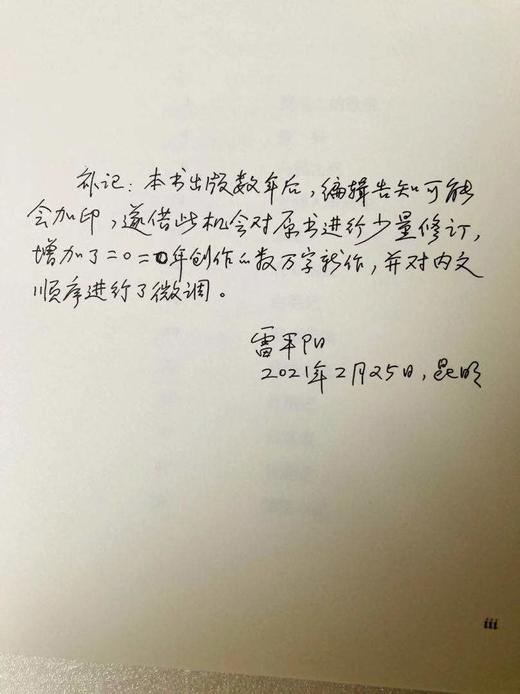 补记：本书出版数年后，编辑告知可能
会加印，遂借此机会对原书进行少量修订，
增加了二〇二〇年创作的数万字新作，并对内文
顺序进行了微调。
雷平阳
2021年2月25日，昆明
iii